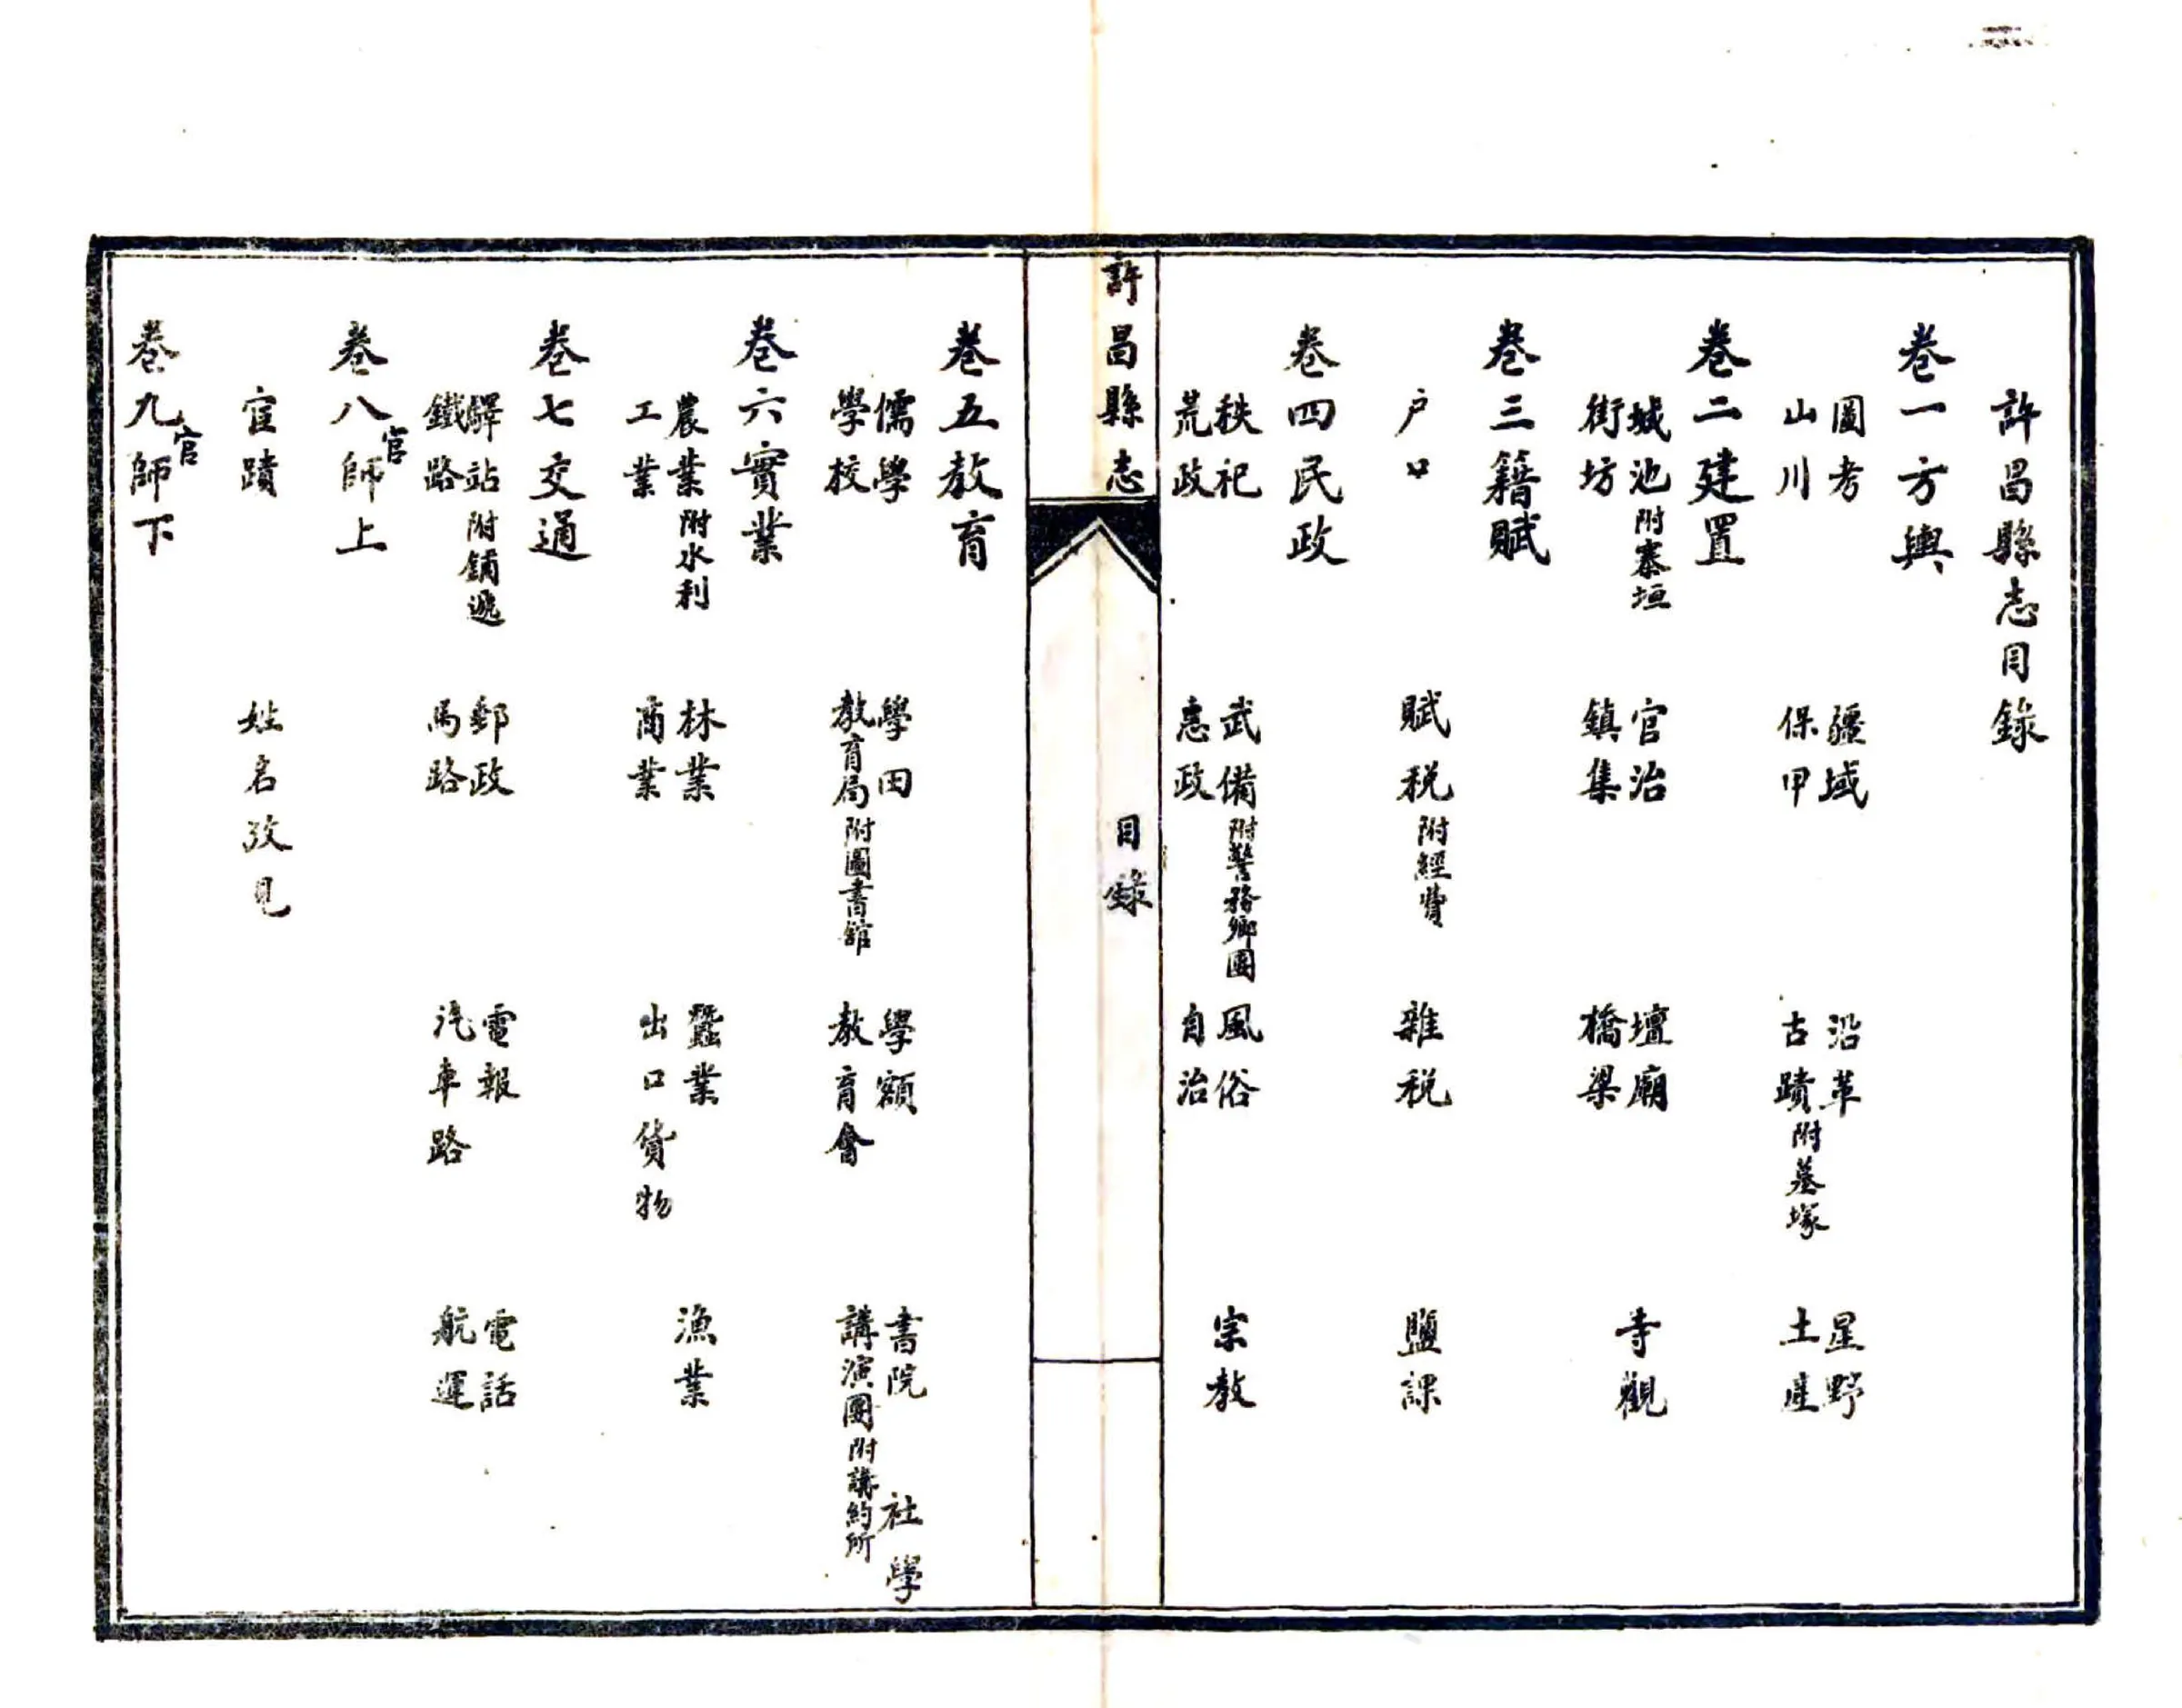 許昌縣志目錄
卷一方輿
圖考 疆域 沿革 星野
山川 保甲 古蹟附墓塚 土產
卷二建置
城池附寨垣 官治 壇廟 寺觀
街坊 鎮集 橋梁
卷三籍賦
户口 賦税附經費 雜税 鹽課
卷四民政
秩祀 武備附警務鄉團 風俗 宗教
荒政 惠政 自治
許昌縣志
目錄
卷五教育
儒學 學田 學額 書院 社學
學校 教育局附圖書館 教育會 講演團附講約所
卷六實業
農業附水利 林業 蠶業 漁業
工業 商業 出口貨物
卷七交通
驛站附鋪遞 郵政 電報 電話
鐵路 馬路 汽車路 航運
卷八官師上
宦蹟 姓名攷見
卷九官師下